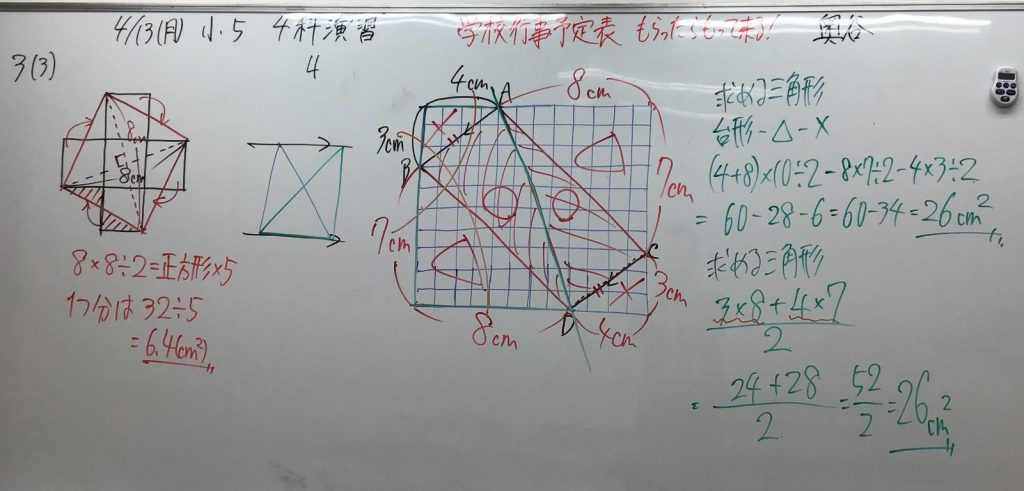 4/13(月) 小5 4科演習 学校行事予定表 もらったらもって来る! 奥谷
3(3)
8cm
8cm
8×8÷2=正方形×5
1つ分は 32÷5
=6.4(cm²)
4
4cm A 8cm
3cm
B
7cm
7cm
C
3cm
8cm D 4cm
求める三角形
台形-△-×
(4+8)×10÷2-8×7÷2-4×3÷2
=60-28-6=60-34=26cm²
求める三角形
3×8+4×7
2
=24+28/2=52/2=26cm²